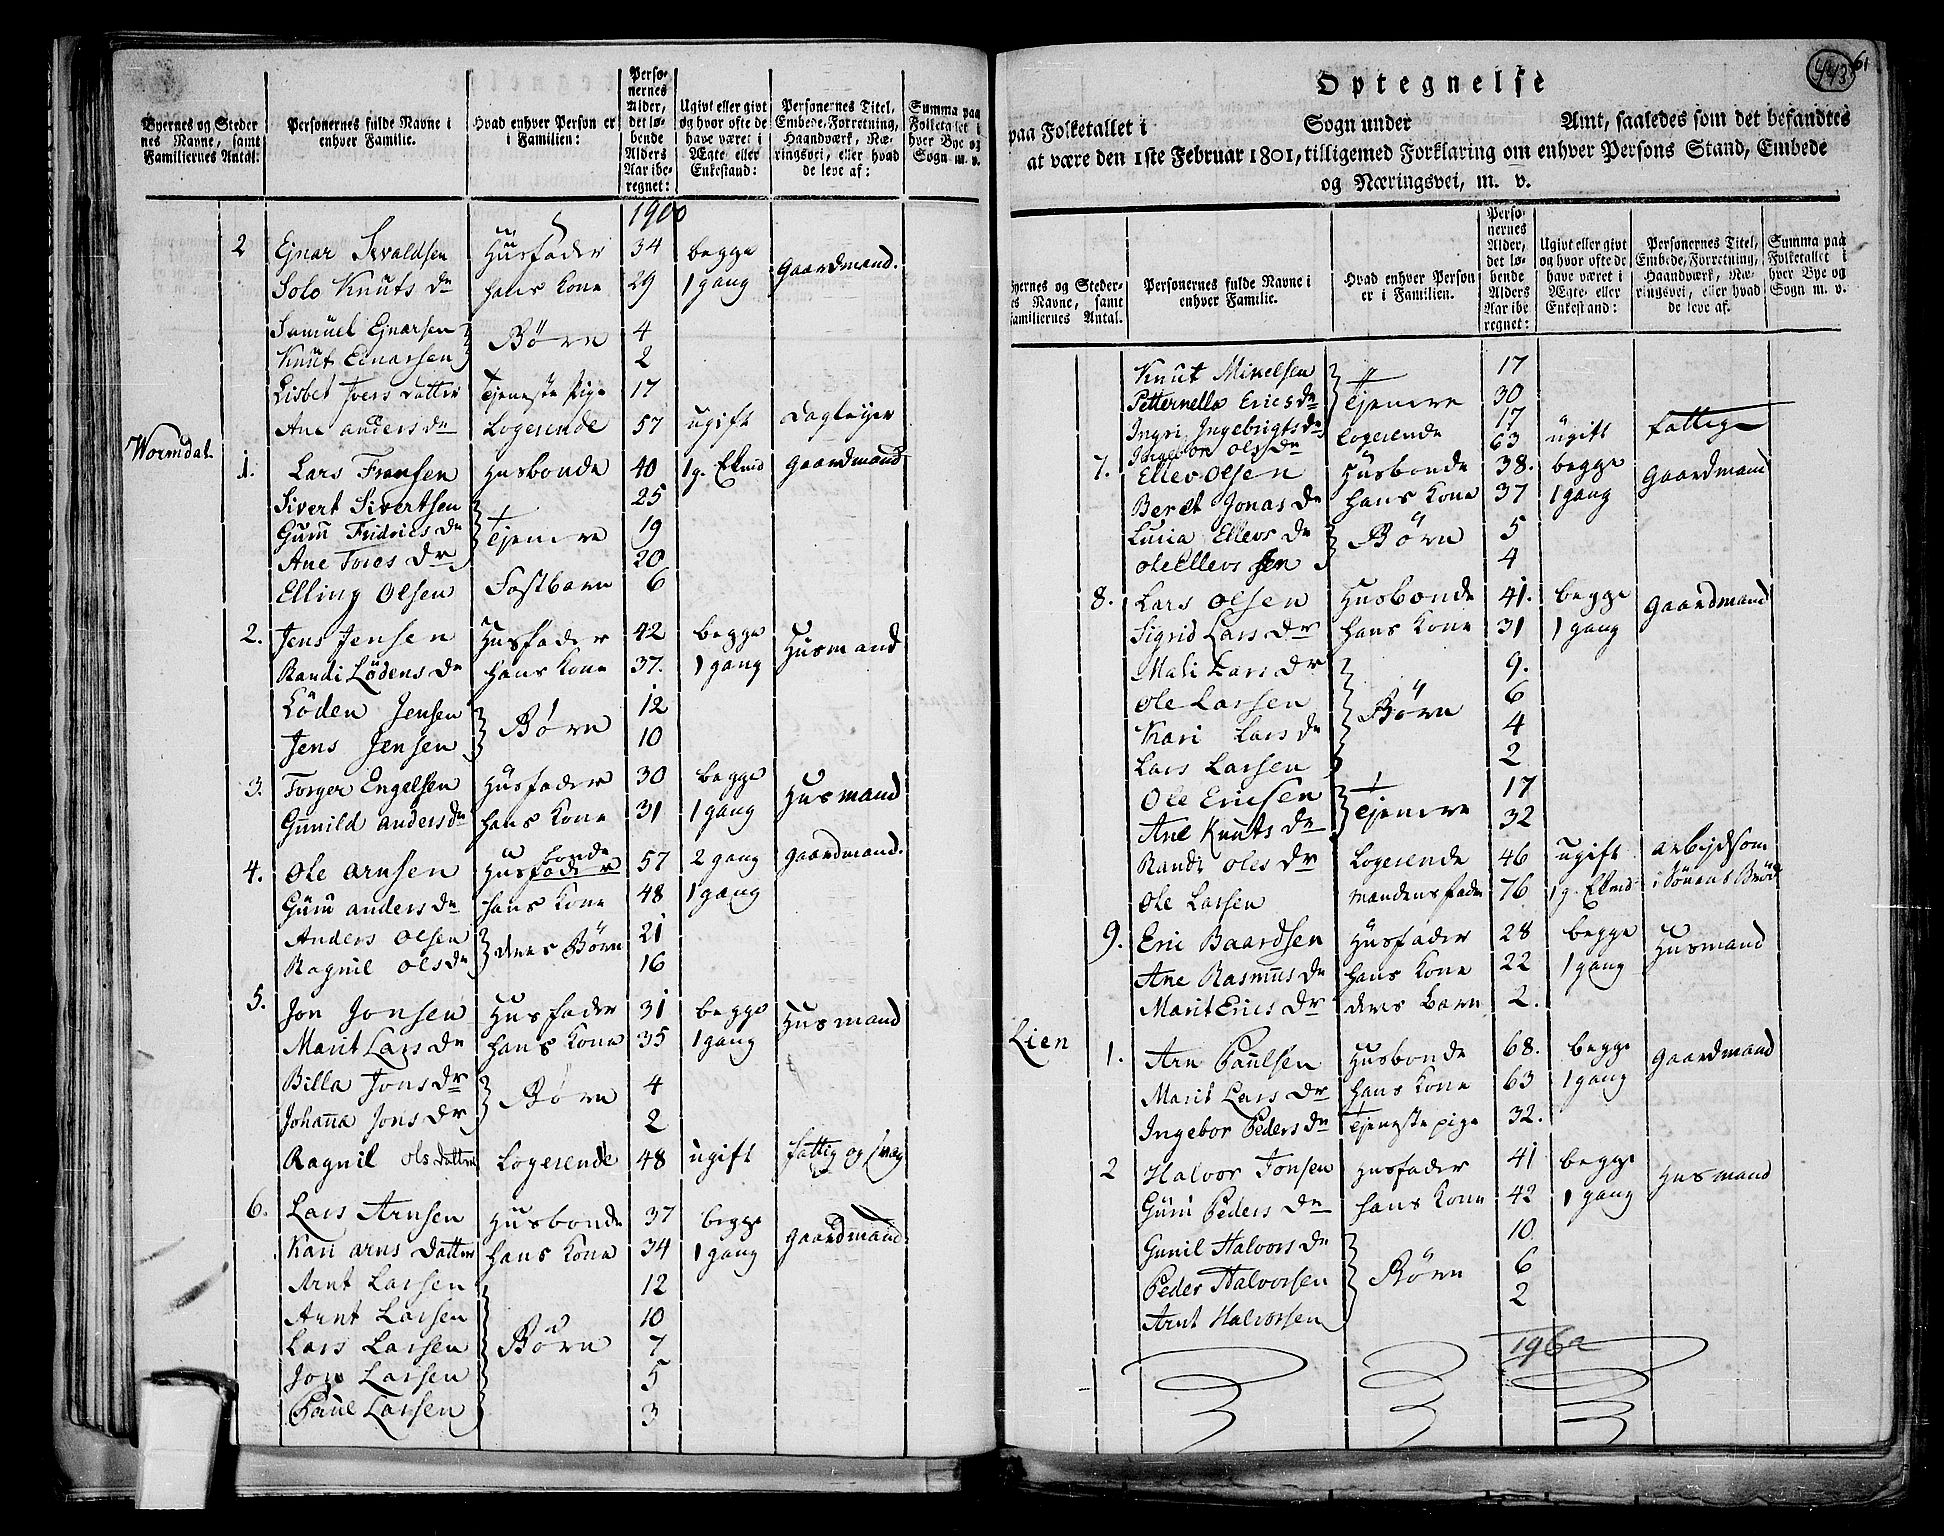 Byernes og Steder
nes Navne, samt
Familiernes Antal.
Personernes fulde Navne i
enhver Familie.
Hvad enhver Person er
i Familien:
Perso-
nernes
Alder,
det lø-
bende
Alders
Aar ibe-
regnet:
Ugivt eller givt
og hvor ofte de
have været i
Ægte eller
Enkestand:
Personernes Titel,
Embede, Forretning,
Haandværk, Næ-
ringsvei, eller hvad
de leve af:
Summa paa
Folketallet i
hver Bye og
Sogn m. v.
1900
2 Ejnar Sivaldsen Husfader 34 begge Gaardmand.
Solo Knuts Dr hans Kone 29 1 gang
Samuel Ejnarsen Børn 4
Knut Einarsen 2
Lisbet Joers Datter Tjeneste Pige 17
Ane anders Dr Logerende 57 ugift Dagleyer
Wormdal
1. Lars Fransen Husbonde 40 1 g. Ekmd Gaardmand
Sivert Sivertsen Tjenere 25
Guru Fridrics Dr 19
Ane Tores Dr 20
Elling Olsen Fostbarn 6
2. Jens Jensen Husfader 42 begge Husmand
Randi Lødens Dr hans Kone 37. 1 gang
Løden Jensen Børn 12
Jens Jensen 10
3. Torger Engelsen Husfader 30 begge Husmand
Gunild anders Dr hans Kone 31 1 gang
4. Ole Arnsen Husfader bonde 57 2 gang Gaardmand.
Guru anders Dr hans Kone 48 1 gang
Anders Olsen deres Børn 21
Ragnil Ols Dr 16
5. Jon Jonsen Husfader 31 begge Husmand
Marit Lars Dr hans Kone 35 1 gang
Billa Jons Dr Børn 4
Johanna Jons Dr 2
Ragnil Ols Datter Logerende 48 ugift fattig og svag
6. Lars Arnsen Husbonde 37 begge Gaardmand
Kari arns Datter hans Kone 34 1 gang
Arnt Larsen 12
Arnt Larsen 10
Lars Larsen Børn 7
Jon Larsen 5
Paul Larsen 3
443 61
Optegnelse
paa Folketallet i Sogn under Amt, saaledes som det befandtes
at være den 1ste Februar 1801, tilligemed Forklaring om enhver Persons Stand, Embede
og Næringsvei, m. v.
Byernes og Steder-
es Navne, samt
Familiernes Antal.
Personernes fulde Navne i
enhver Familie.
Hvad enhver Person
er i Familien.
Perso-
nernes
Alder,
det lø-
bende
Alders
Aar ibe-
regnet:
Ugivt eller givt
og hvor ofte de
have været i
Ægte- eller
Enkestand:
Personernes Titel,
Embede, Forretning,
Haandværk, Næ-
ringsvei, eller hvad
de leve af.
Summa paa
Folketallet i
hver Bye og
Sogn m. v.
Knut Mikelsen Tjenere 17
Petternella Erics Dr 30
Ingri Ingebrigts Dr 17
Ingebor Ols Dr logerende 63 ugift fattig
7. Ellev Olsen Husbonde 38. begge Gaardmand
Beret Jonas Dr hans Kone 37 1 gang
Lucia Ellevs Dr Børn 5
Ole Ellevsen 4
8. Lars Olsen Husbonde 41. begge Gaardmand
Sigrid Lars Dr hans Kone 31 1 gang
Mali Lars Dr 9.
Ole Larsen Børn 6
Kari Lars Dr 4
Lars Larsen 2
Ole Ericsen Tjenere 17
Ane Knuts Dr 32
Randi Oles Dr Logerende 46 ugift arbejdsom
Ole Larsen mandens fader 76 1 g. Ekmd i Sønens Brød
9. Eric Baardsen Husfader 28 begge Husmand
Ane Rasmus Dr hans Kone 22 1 gang
Marit Erics Dr deres Barn 2.
Lien
1. Arn Paulsen Husbonde 68. begge Gaardmand
Marit Lars Dr hans Kone 63 1 gang
Ingebor Peders Dr Tjeneste pige 32.
2 Halvor Jonsen Husfader 41 begge Husmand
Guru Peders Dr hans Kone 42 1 gang
Gunil Halvors Dr 10
Peder Halvorsen Børn 6
Arnt Halvorsen 2
1962